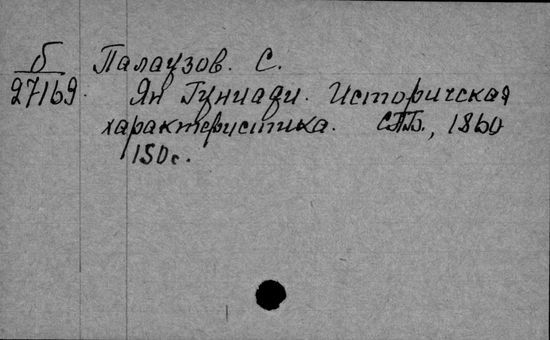 б Палаузов. С.
27169. Ян Гуниади. Историчская
характеристика. СПБ., 1860
150 с.